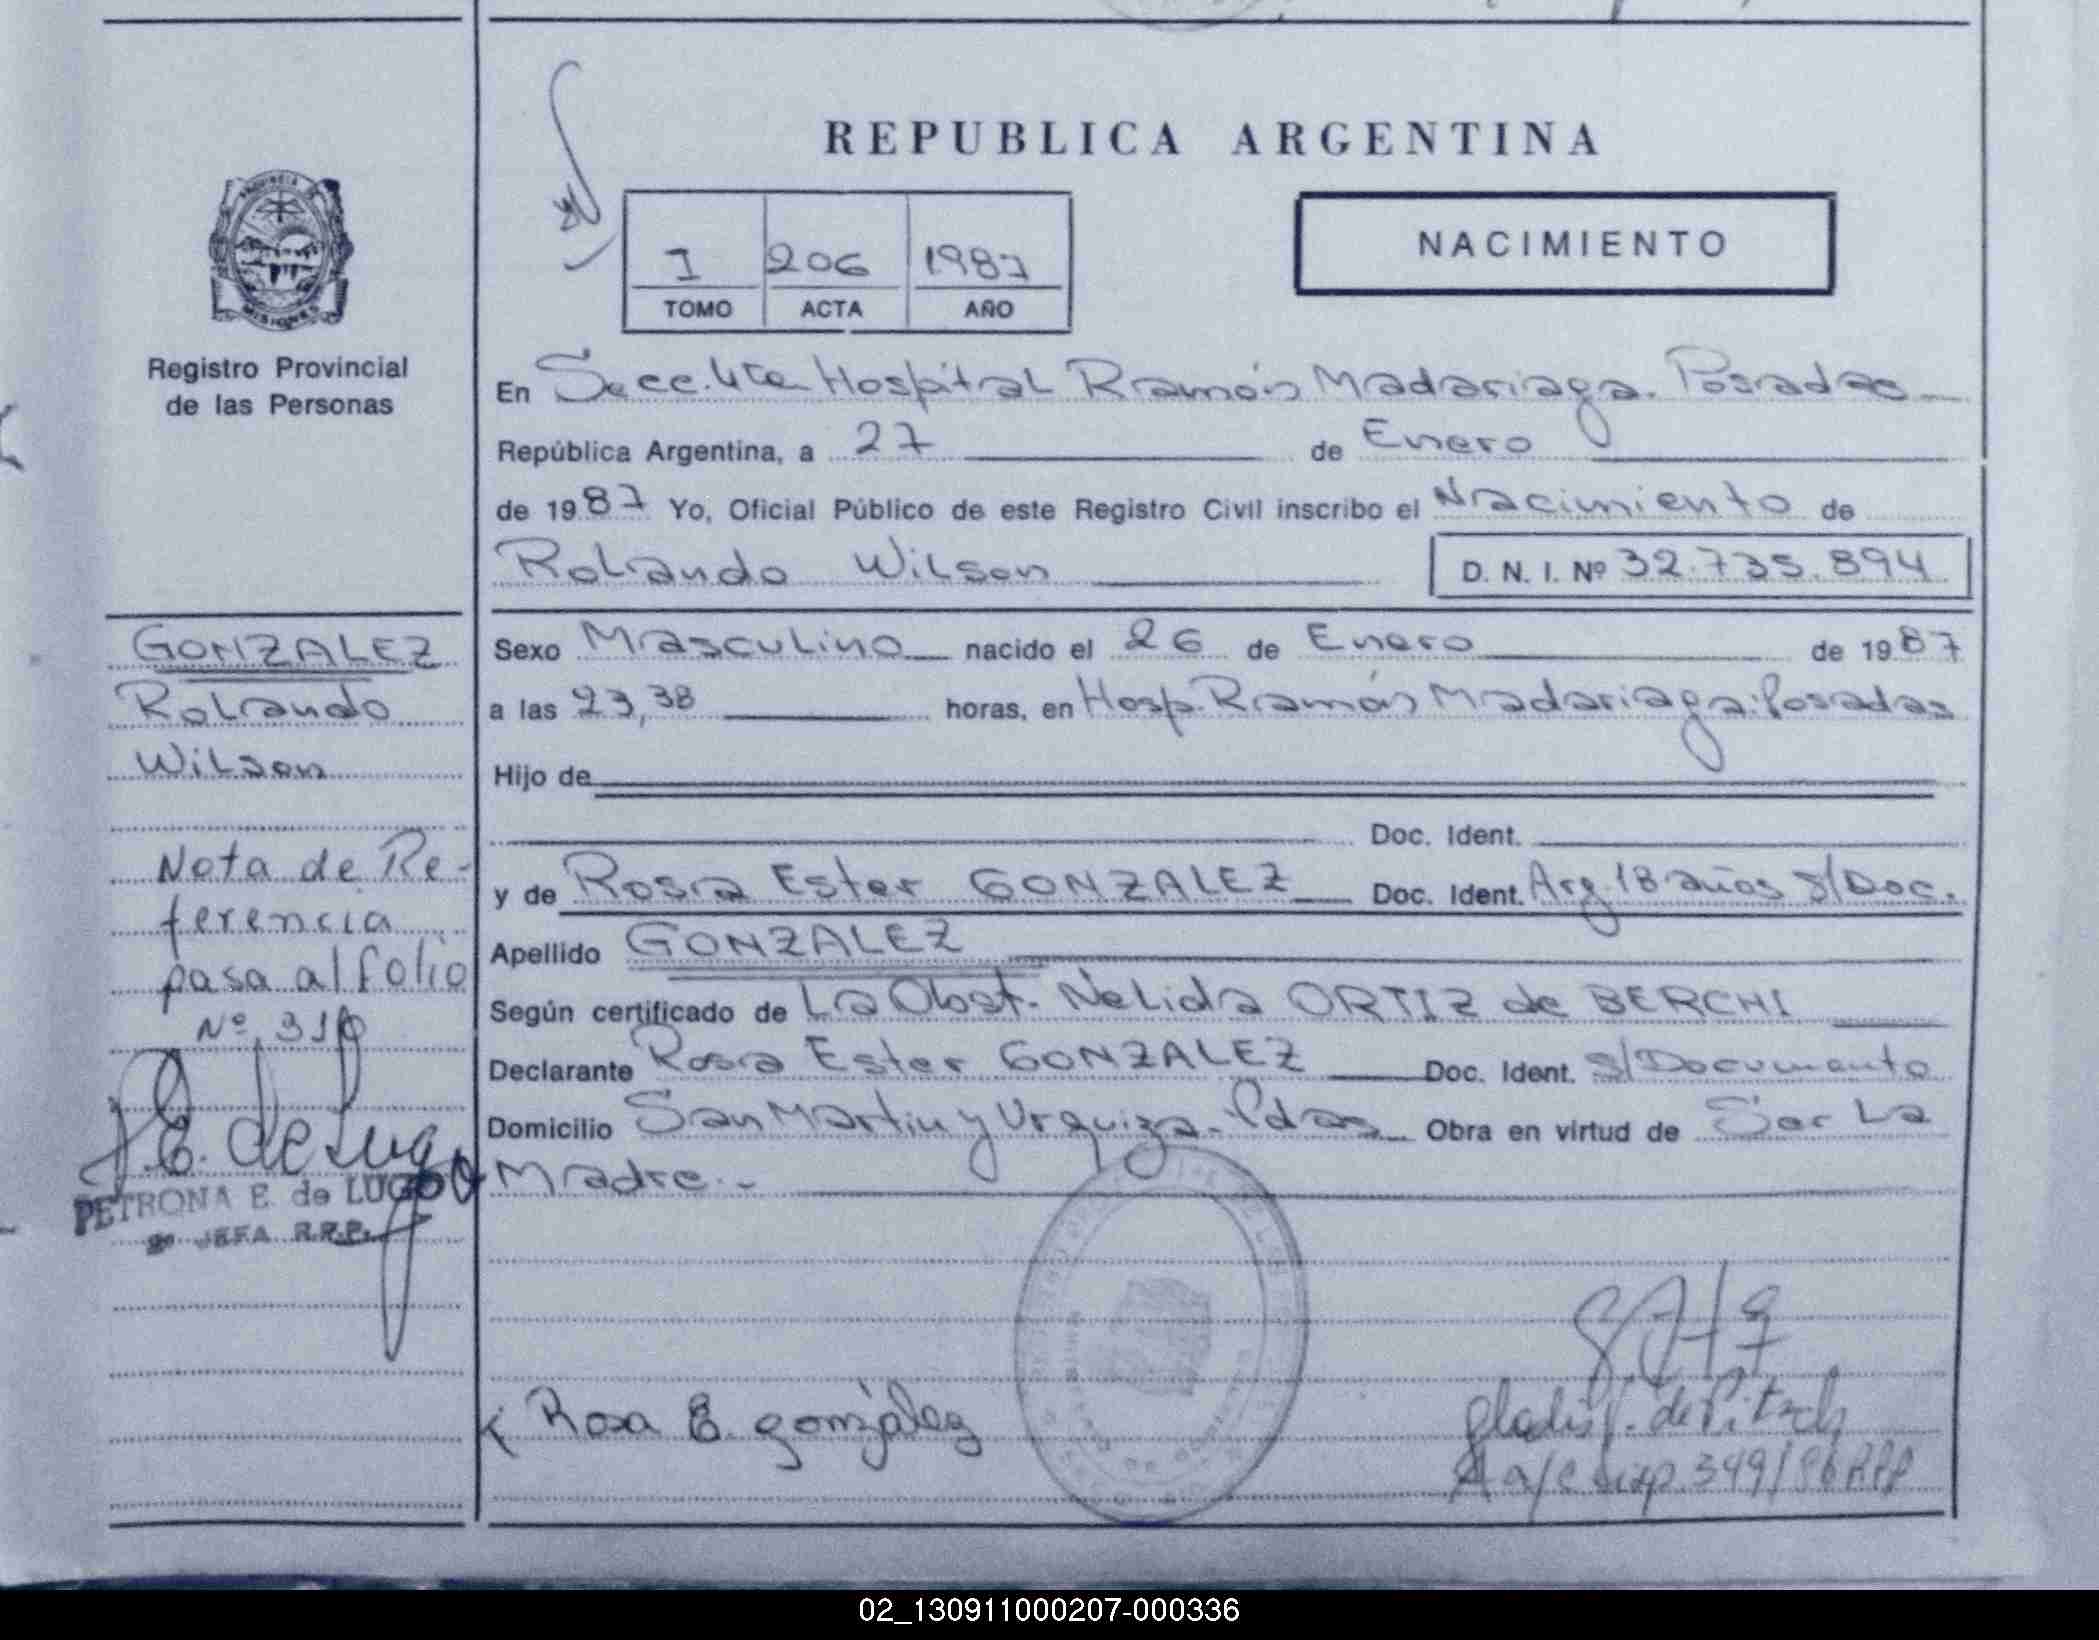 REPUBLICA ARGENTINA
NACIMIENTO
I 206 1987
TOMO ACTA AÑO
MISIONES
Registro Provincial
de las Personas
En Secc. 4ta Hospital Ramón Madariaga. Posadas
República Argentina, a 27 de Enero
de 1987 Yo, Oficial Público de este Registro Civil inscribo el Nacimiento de
Rolando Wilson D. N. I. Nº 32.735.894
Sexo Masculino nacido el 26 de Enero de 1987
a las 23,38 horas, en Hosp. Ramón Madariaga. Posadas
Hijo de
Doc. Ident.
y de Rosa Ester GONZALEZ Doc. Ident. Arg. 18 años S/Doc.
Apellido GONZALEZ
Según certificado de La Obst. Nelida ORTIZ de BERCHI
Declarante Rosa Ester GONZALEZ Doc. Ident. S/Documento
Domicilio San Martin y Urquiza. Pdas Obra en virtud de Ser La
Madre.-
GONZALEZ
Rolando
Wilson
Nota de Re-
ferencia
pasa al folio
Nº 310
P.E. de Lugo
PETRONA E. de LUGO
JEFA R.R.P.
Rosa E. gonzález
Gladis de Pitsch
349/86 RPP
02_130911000207-000336